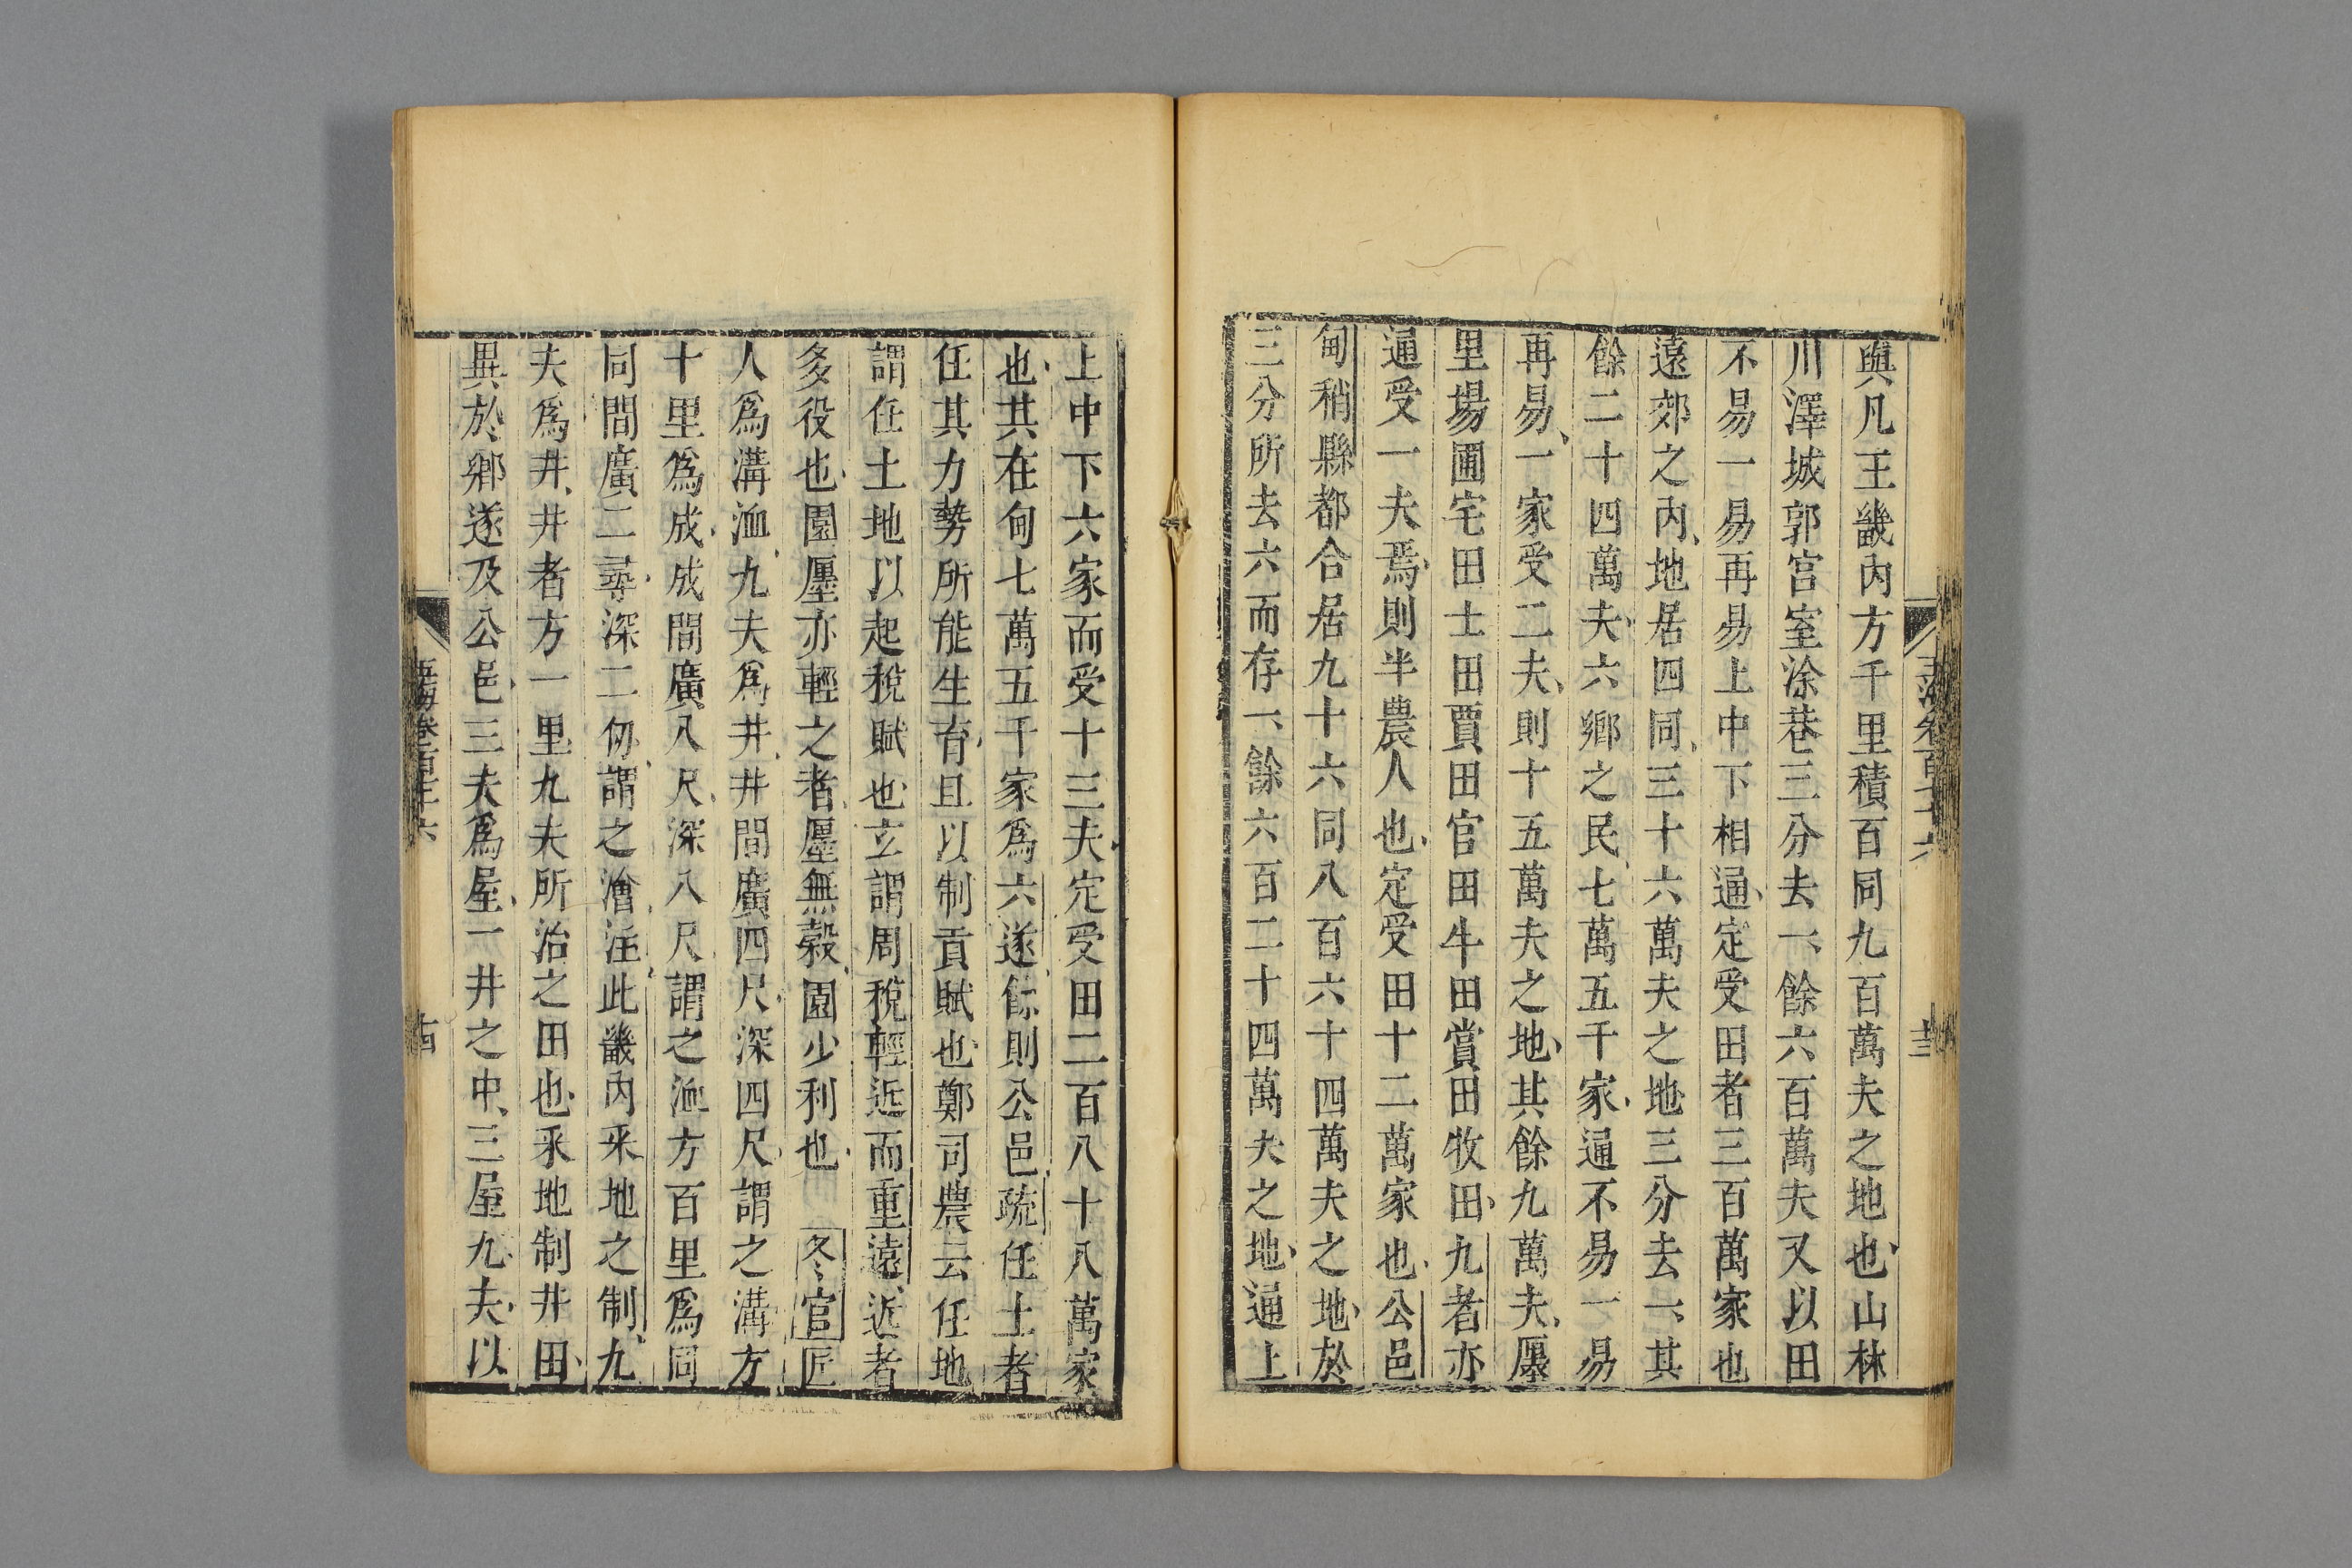 與凡王畿内方千里積百同九百萬夫之地也山林
川澤城郭宫室涂巷三分去一餘六百萬夫又以田
不易一易再易上中下相通定受田者三百萬家也
遠郊之内地居四同三十六萬夫之地三分去一其
餘二十四萬夫六鄉之民七萬五千家通不易一易
再易一家受二夫則十五萬夫之地其餘九萬夫廛
里場圃宅田士田賈田官田牛田賞田牧田九者亦
通受一夫焉則半農人也定受田十二萬家也公邑
甸稍縣都合居九十六同八百六十四萬夫之地於
三分所去六而存一餘六百二十四萬夫之地通上
上中下六家而受十三夫定受田二百八十八萬家
也其在甸七萬五千家爲六遂餘則公邑疏任土者
任其力勢所能生育且以制貢賦也鄭司農云任地
謂任土地以起稅賦也玄謂周稅輕近而重遠近者
多役也園廛亦輕之者廛無穀園少利也 冬官匠
人爲溝洫九夫爲井井間廣四尺深四尺謂之溝方
十里爲成成間廣八尺深八尺謂之洫方百里爲同
同間廣二尋深二仞謂之澮注此畿内采地之制九
夫爲井井者方一里九夫所治之田也采地制井田
異於鄉遂及公邑三夫爲屋一井之中三屋九夫以